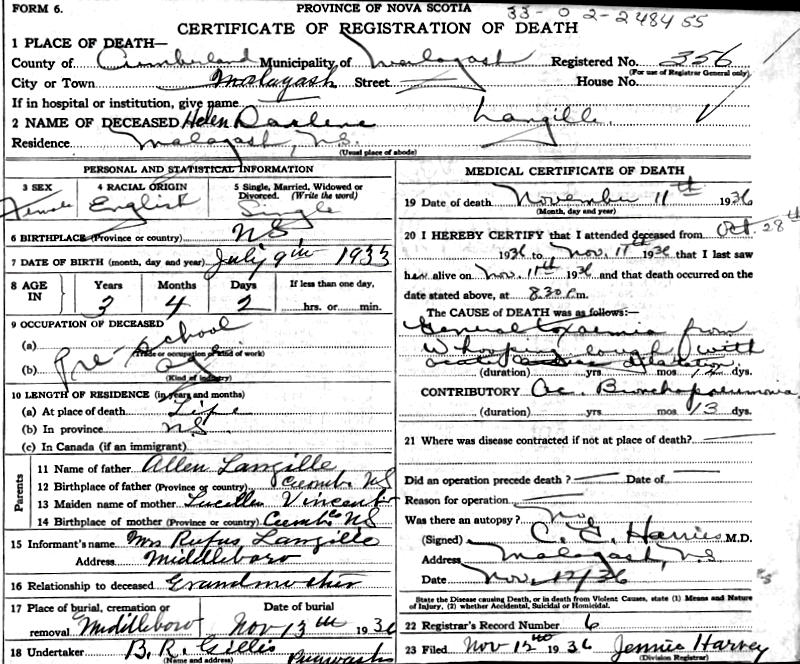 FORM 6.
PROVINCE OF NOVA SCOTIA
33-0 2-248455
CERTIFICATE OF REGISTRATION OF DEATH
1 PLACE OF DEATH—
County of Cumberland Municipality of Malagash Registered No. 356
(For use of Registrar General only)
City or Town Malagash Street House No.
If in hospital or institution, give name
2 NAME OF DECEASED Helen Darlene Langille
Residence Malagash, N.S.
(Usual place of abode)
PERSONAL AND STATISTICAL INFORMATION
3 SEX 4 RACIAL ORIGIN 5 Single, Married, Widowed or Divorced. (Write the word)
Female English Single
6 BIRTHPLACE (Province or country) NS
7 DATE OF BIRTH (month, day and year) July 9th 1933
8 AGE IN Years Months Days If less than one day,
3 4 2 hrs. or min.
9 OCCUPATION OF DECEASED
(a) Pre-School
(Trade or occupation or kind of work)
(b) age
(Kind of industry)
10 LENGTH OF RESIDENCE (in years and months)
(a) At place of death Life
(b) In province NS
(c) In Canada (if an immigrant)
Parents
11 Name of father Allen Langille
12 Birthplace of father (Province or country) Cumb. NS
13 Maiden name of mother Lucilla Vincent
14 Birthplace of mother (Province or country) Cumb. NS
15 Informant's name Mrs Rufus Langille
Address Middleboro
16 Relationship to deceased Grandmother
17 Place of burial, cremation or removal Middleboro
Date of burial Nov 13th 1936
18 Undertaker B. R. Gillis Pugwash
(Name and address)
MEDICAL CERTIFICATE OF DEATH
19 Date of death November 11th 1936
(Month, day and year)
20 I HEREBY CERTIFY that I attended deceased from Oct. 28th
1936 to Nov. 11th 1936 that I last saw
her alive on Nov. 11th 1936 and that death occurred on
date stated above, at 8.30 P.m.
The CAUSE of DEATH was as follows:—
General toxaemia from
Whooping Cough with
acute cardiac dilatation
(duration) yrs mos 14 dys.
CONTRIBUTORY Ac. Bronchopneumonia
(duration) yrs mos 13 dys.
21 Where was disease contracted if not at place of death?
Did an operation precede death? Date of
Reason for operation
Was there an autopsy? No
(Signed) C. E. Harries M.D.
Address Malagash, N.S.
Date Nov. 12/36
State the Disease causing Death, or in death from Violent Causes, state (1) Means and Nature
of Injury, (2) whether Accidental, Suicidal or Homicidal.
22 Registrar's Record Number 6
23 Filed Nov 12th 1936 Jennie Harvey
(Division Registrar)